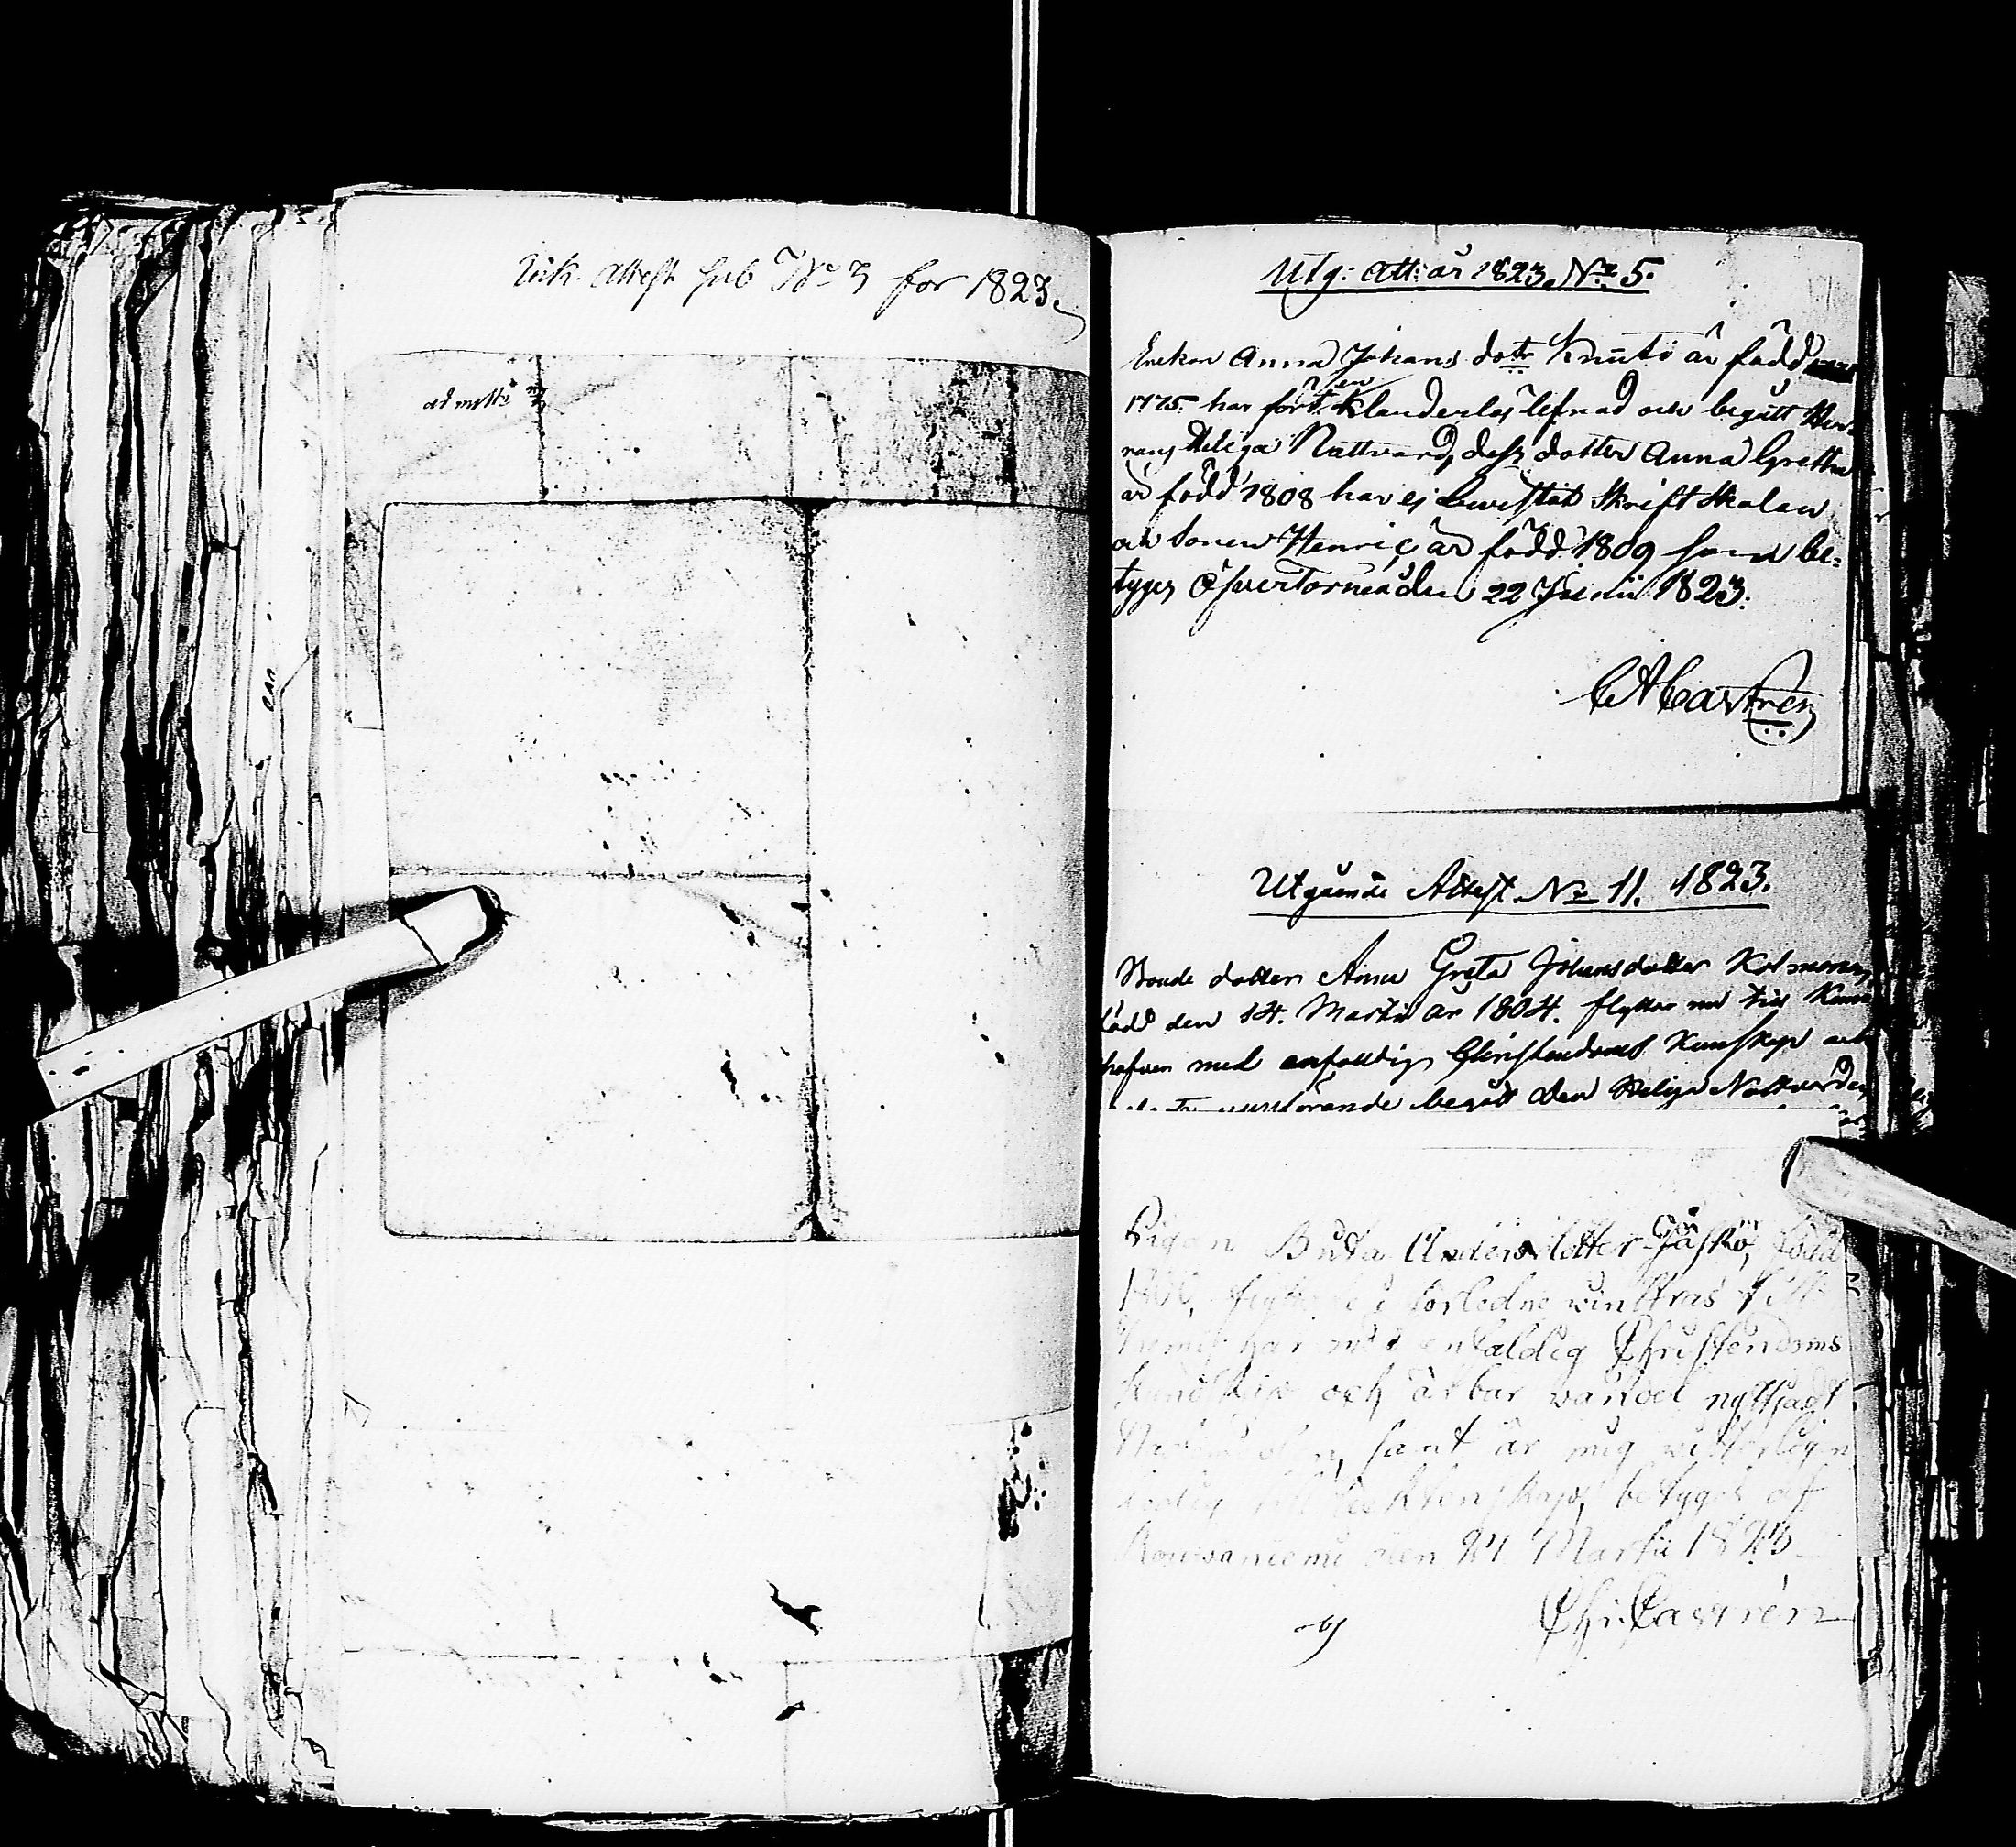 Ink. Attest sub No 3 for 1823.
Utg: att: år 1823. No 5.
Enckan Anna Johans dotr Knuuti är född
1775. har fört en klanderlös lefnad och begått Her-
rans Heliga Nattvard, dess dotter Anna Gretha
är född 1808 har ej bewistat Skriftskolan
och Sonen Henric är född 1809 som be-
tyges Öfvertorneå den 22 Junii 1823.
CACastrén
Utgående Attest No 11. 1823.
Bonde dottern Anna Greta Johansdotter Kolmoren
född den 14. Martii år 1804. flyttar nu till
med enfaldig Christendoms Kunskap och
begått den Helga Nattvarden
Pigan Brita Andersdotter Jåskö, född
förledne wintras till
har med enfaldig Christendoms
Kundskap och ärbar vandel nyttjadt
samt är mig witterligen
ledig till ächtenskap, betygas af
Rouvaniemi den 24 Martii 1823
Chr. Castrén